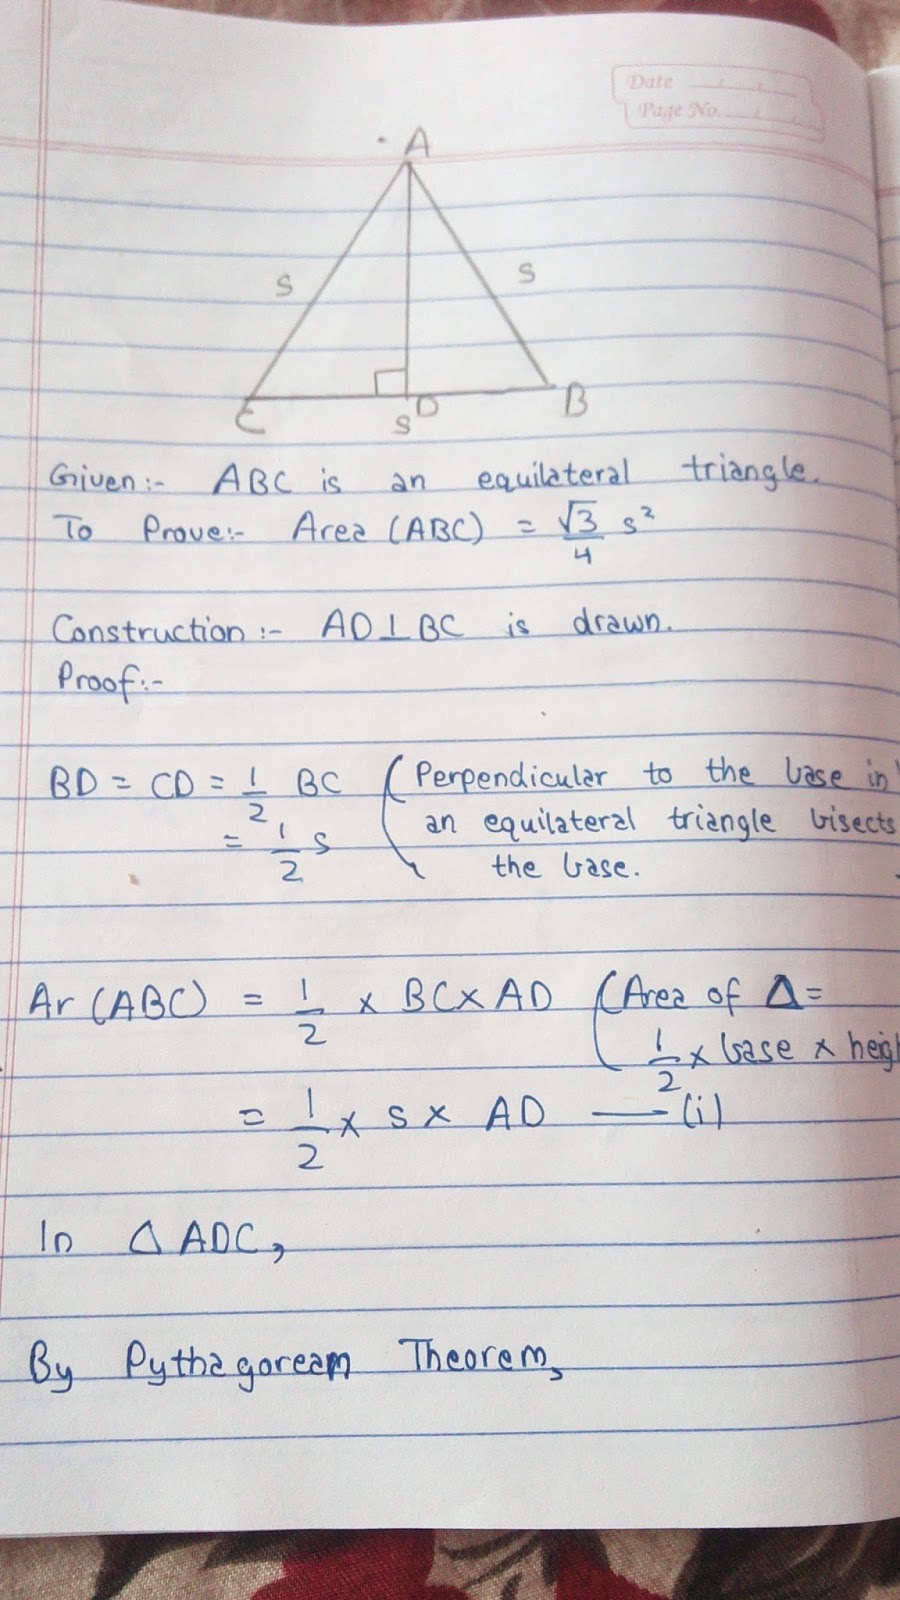 Date
Page No.
A
S
S
C
D
B
S
Given:- ABC is an equilateral triangle.
To Prove:- Area (ABC) = √3/4 s²
Construction :- AD⊥BC is drawn.
Proof:-
BD = CD = 1/2 BC (Perpendicular to the base in
= 1/2 s an equilateral triangle bisects
the base.
Ar (ABC) = 1/2 × BC × AD (Area of Δ =
1/2 × base × heigh
= 1/2 × s × AD — (i)
In Δ ADC,
By Pythagorean Theorem,